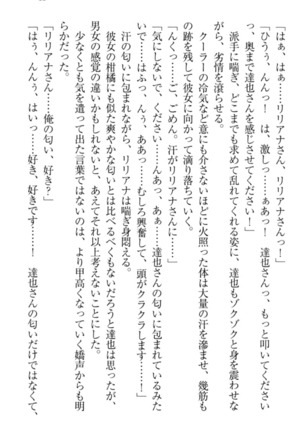 「はぁ、はぁ……リリアナさん、リリアナさんっ！」
「ひぅう、んんっ！　は、激しっ……ぁああっ！　達也さんっ、もっと叩いてください
っ、奥まで達也さんを感じさせてください！」
派手に喘ぎ、どこまでも求めて乱れてくれる姿に、達也はゾクゾクと身を震わせな
がら、劣情を滾らせる。
クーラーの冷気など意にも介さないほどに火照った体は大量の汗を滲ませ、幾筋も
の跡を残して彼女に向かって滴り落ちていく。
「んくっ……ご、ごめん。汗がリリアナさんに……」
「気にしないで、ください……んあっ、あぁ……達也さんの匂いに包まれているみた
いで……はふっ、んぅ、ああっ……むしろ興奮して、頭がクラクラします……！」
汗の匂いに包まれながら、リリアナは喘ぎ身悶える。
彼女の柑橘にも似た爽やかな匂いとは比べるべくもないだろうと達也は思ったが、
男女の感覚の違いかもしれないと、あえてそれ以上考えないことにした。
少なくとも気を遣って出た言葉ではないのは、より甲高くなっていく嬌声からも明
らかだった。
「リリアナさん……俺の匂い、好き？」
「はぅ、んんぅ、はいっ……好き、好きです……！　達也さんの匂いだけではなくて、